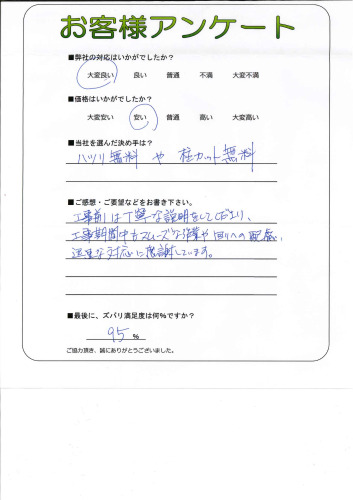 お客様アンケート
■弊社の対応はいかがでしたか?
大変良い 良い 普通 不満 大変不満
■価格はいかがでしたか?
大変安い 安い 普通 高い 大変高い
■当社を選んだ決め手は?
ハツリ無料 や 柱カット無料
■ご感想・ご要望などをお書き下さい。
工事前は丁寧な説明をしてくださり、
工事期間中もスムーズな作業や回りへの配慮、
迅速な対応に感謝しています。
■最後に、ズバリ満足度は何%ですか?
95 %
ご協力頂き、誠にありがとうございました。